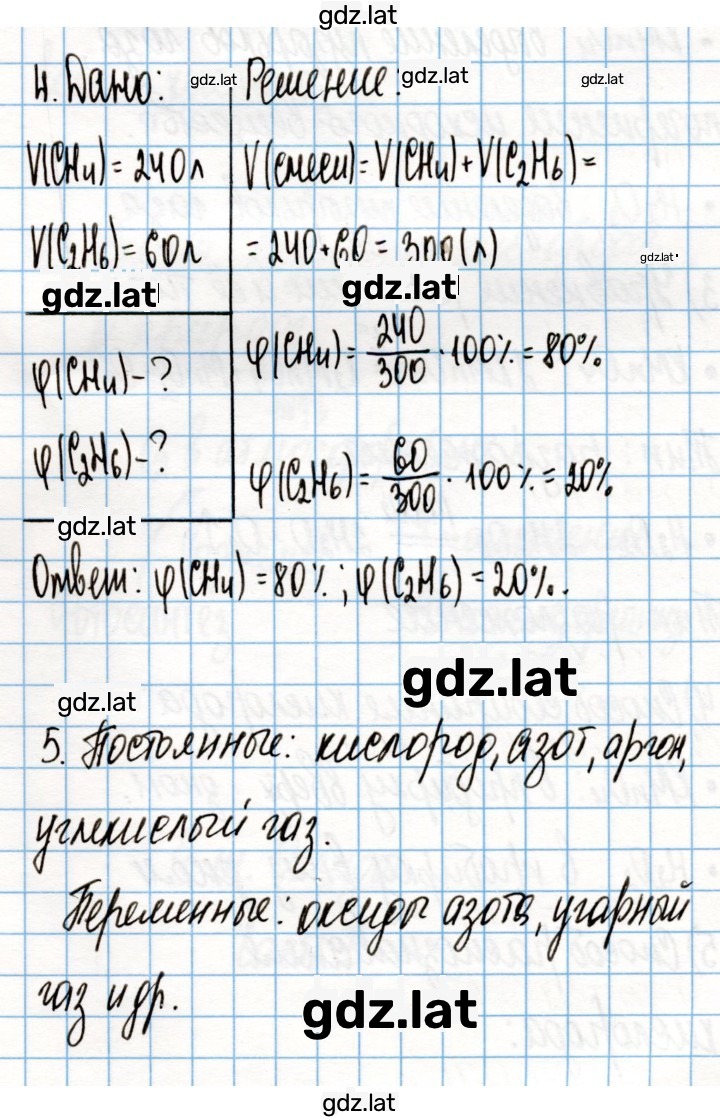 gdz.lat
4. Дано: gdz.lat Решение: gdz.lat gdz.lat
V(CH₄) = 240 л V(смеси) = V(CH₄) + V(C₂H₆) =
V(C₂H₆) = 60 л = 240 + 60 = 300 (л) gdz.lat
gdz.lat gdz.lat
φ(CH₄) - ? φ(CH₄) = 240/300 · 100% = 80%
φ(C₂H₆) - ? φ(C₂H₆) = 60/300 · 100% = 20%
gdz.lat
Ответ: φ(CH₄) = 80%; φ(C₂H₆) = 20%.
gdz.lat
gdz.lat
5. Постоянные: кислород, азот, аргон,
углекислый газ.
Переменные: оксиды азота, угарный
газ и др.
gdz.lat
gdz.lat